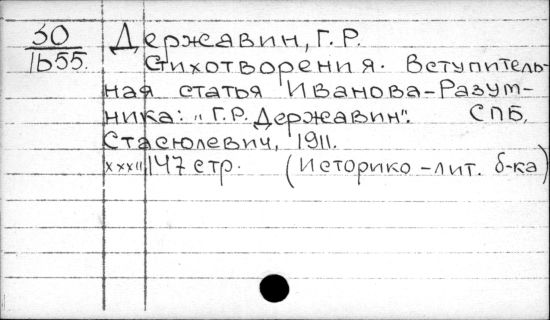 30 Державин, Г.Р.
1655. Стихотворения. Вступитель-
ная статья Иванова-Разум-
ника: "Г.Р. Державин". СПБ,
Стасюлевич, 1911.
xxxii, 147 стр. (Историко-лит. б-ка)